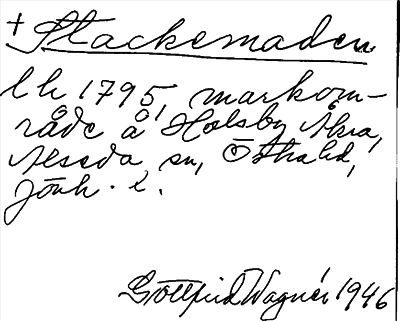 + Stackemaden
lh 1795, markom-
råde å Holsby Åkra,
Alseda sn, Östra hd,
Jönk. l.
Gottfrid Wagnér 1946